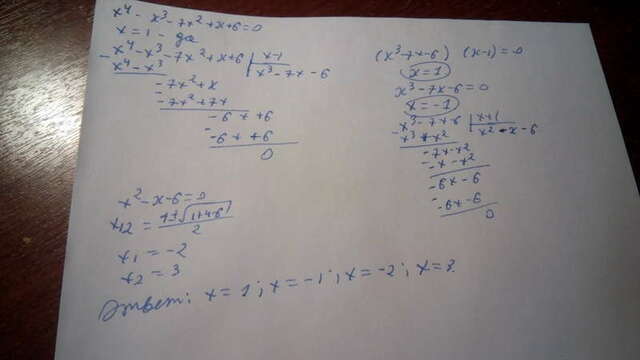 x⁴ - x³ - 7x² + x + 6 = 0
x = 1 - да
x⁴ - x³ - 7x² + x + 6 | x-1
x⁴ - x³ | x³ - 7x - 6
-7x² + x
-7x² + 7x
-6x + 6
-6x + 6
0
(x³ - 7x - 6) (x-1) = 0
x = 1
x³ - 7x - 6 = 0
x = -1
x³ - 7x - 6 | x+1
x³ + x² | x² - x - 6
-7x - x²
-x - x²
-6x - 6
-6x - 6
0
x² - x - 6 = 0
x₁ = -2
x₂ = 3
Ответ: x = 1; x = -1; x = -2; x = 3.